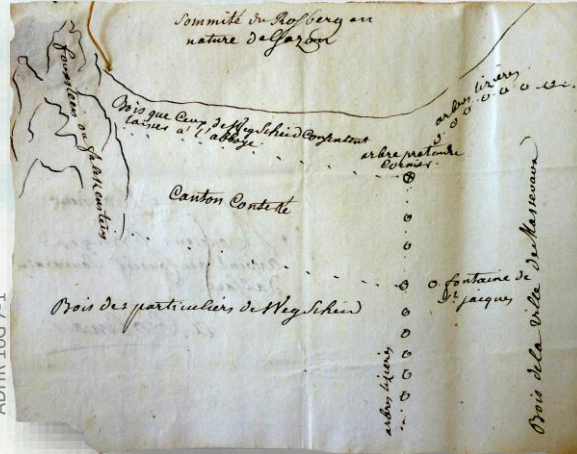 Sommité du Rosberg en
nature de Gazon
arbres lizières
Bois que Ceux de Wegscheid Consentent
laisser à l'abbaye
arbre pretendu
Cornier
Canton Contesté
fontaine de
St jacques
Bois des particuliers de Wegscheid
arbres lizieres
Bois de la Ville de Massevaux
ADHR 10G 7-1